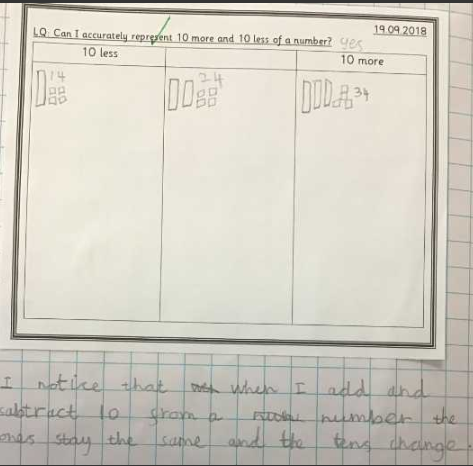 19.09.2018
LQ: Can I accurately represent 10 more and 10 less of a number? yes
10 less
10 more
14
24
34
I notice that when I add and
subtract 10 from a number the
ones stay the same and the tens change.